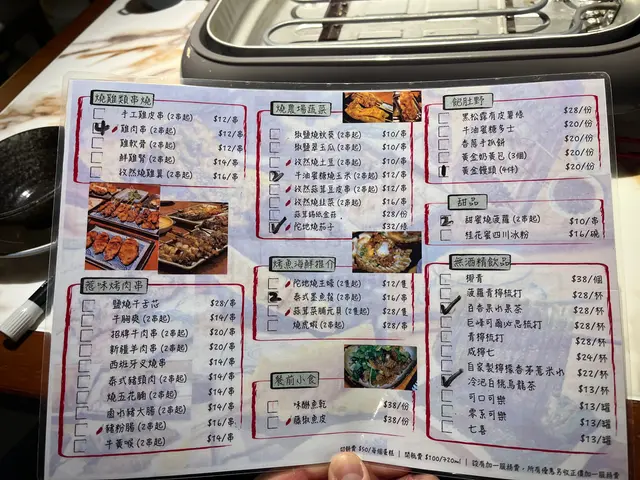 燒雞類串燒
手工雞皮串 (2串起) $12/串
4 雞肉串 (2串起) $12/串
雞軟骨 (2串起) $12/串
鮮雞腎 (2串起) $14/串
孜然燒雞翼 (2串起) $16/串
惹味烤肉串
鹽燒牛舌芯 $28/串
牛胸爽 (2串起) $14/串
招牌牛肉串 (2串起) $20/串
新疆羊肉串 (2串起) $20/串
西班牙叉燒串 $14/串
泰式豬頸肉 (2串起) $14/串
燒五花腩 (2串起) $14/串
鹵水豬大腸 (2串起) $14/串
豬粉腸 (2串起) $16/串
牛黃喉 (2串起) $14/串
燒農場蔬菜
椒鹽燒秋葵 (2串起) $10/串
椒鹽翠玉瓜 (2串起) $10/串
孜然燒土豆 (2串起) $10/串
2 牛油蜜糖燒玉米 (2串起) $12/串
孜然蒜茸豆皮串 (2串起) $12/串
孜然燒韭菜 (2串起) $16/串
蒜茸錫紙金菇 $28/份
陀地燒茄子 $32/條
烤魚海鮮推介
陀地燒生蠔 (2隻起) $12/隻
2 泰式墨魚鬚 (2串起) $16/串
蒜茸菜脯元貝 (2隻起) $28/隻
燒虎蝦 (2串起) $28/串
餐前小食
味醂魚乾 $38/份
藤椒魚皮 $38/份
飽肚野
黑松露角皮薯條 $28/份
牛油蜜糖多士 $20/份
香蔥手抓餅 $20/份
黃金奶黃包 (3個) $20/份
1 黃金饅頭 (4件) $20/份
甜品
2 甜蜜燒菠蘿 (2串起) $10/串
桂花蜜四川冰粉 $16/碗
無酒精飲品
椰青 $38/個
菠蘿青檸梳打 $28/杯
百香果水果茶 $28/杯
巨峰可爾必思梳打 $28/杯
青檸梳打 $28/杯
咸檸七 $24/杯
自家製檸檬香茅薏米水 $22/杯
冷泡白桃烏龍茶 $13/杯
可口可樂 $13/罐
零系可樂 $13/罐
七喜 $13/罐
切餅費 $50/每個蛋糕 | 開瓶費 $100/750ml | 設有加一服務費，所有優惠另收正價加一服務費